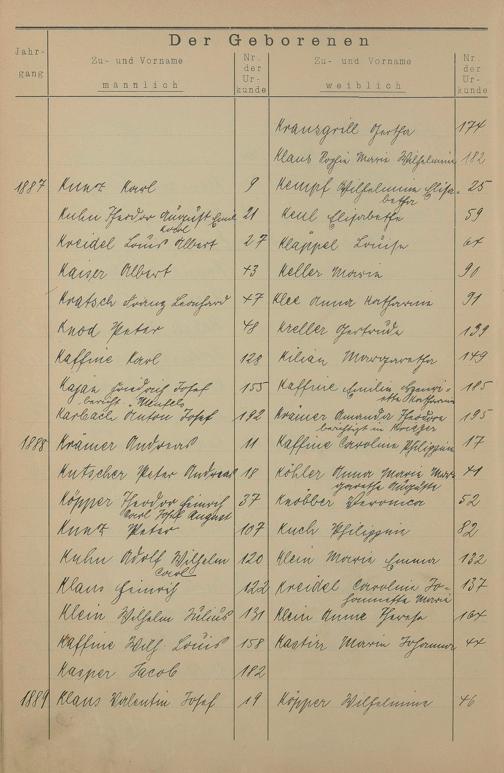 Der Geborenen
Jahr-
gang
Zu- und Vorname
männlich
Nr.
der
Ur-
kunde
Zu- und Vorname
weiblich
Nr.
der
Ur-
kunde
Kransgrill Gertha 174
Klaus Sophie Marie Wilhelmine 182
1887 Kuntz Karl 9 Kempf Wilhelmine Elisa- 25
betha
Kuhn Theodor August Emil 21 Keul Elisabetha 59
Karl
Kreidel Louis Albert 27 Kläppel Louise
Kaiser Albert 43 Keller Maria 90
Kratsch Franz Leonhard 47 Klee Anna Katharina 91
Knod Peter 48 Kreller Gertrude 139
Kaffine Karl 128 Kilian Margaretha 149
Josef 155 Kaffine Emilie Henri- 185
ette Katharina
Karbach Anton Josef 192 Krämer Amanda Theodore 195
berichtigt in
1888 Krämer Andreas 11 Kaffine Caroline Philippine 17
Kutscher Peter Andreas 18 Köhler Anna Maria Mar- 41
garetha Augusta
Köpper Theodor Heinrich 37 Knobber Veronica 52
Carl Josef August
Kuntz Peter 107 Kuch Philippine 82
Kuhn Adolf Wilhelm 120 Klein Marie Emma 132
Carl
Klaus Heinrich 122 Kreidel Caroline Jo- 137
hannette Marie
Klein Wilhelm Julius 131 Klein Anna Therese 164
Kaffine Wilh. Louis 158 Marie Johanna 44
Kasper Jacob 182
1889 Klaus Valentin Josef 19 Köpper Wilhelmine 46